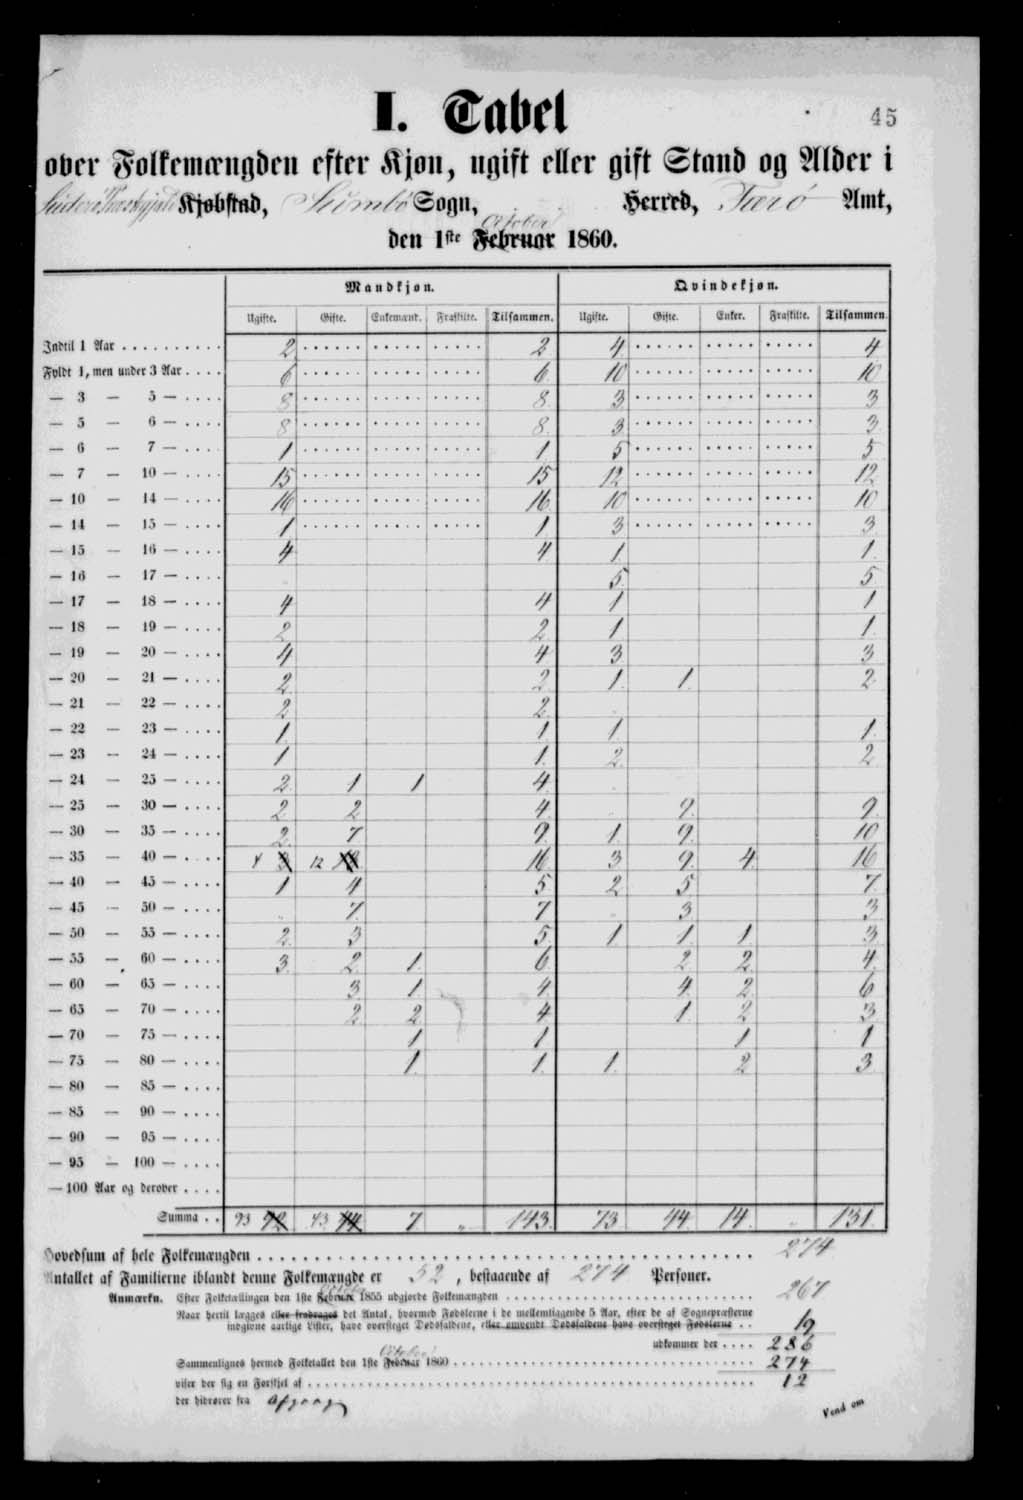 I. Tabel
45
over Folkemængden efter Kjøn, ugift eller gift Stand og Alder i
Kjøbstad, Sumbø Sogn, Herred, Færö Amt,
October
den 1ste Februar 1860.
Mandkjøn. Qvindekjøn.
Ugifte. Gifte. Enkemænd. Fraskilte. Tilsammen. Ugifte. Gifte. Enker. Fraskilte. Tilsammen.
Indtil 1 Aar . . . . . . . . . . 2 2 4 4
Fyldt 1, men under 3 Aar . . . . 6 6. 10 10
— 3 — 5 — . . . . 8 8. 3 3
— 5 — 6 — . . . . 8 8. 3 3
— 6 — 7 — . . . . 1 1 5 5
— 7 — 10 — . . . . 15 15 12 12
— 10 — 14 — . . . . 16 16 10 10
— 14 — 15 — . . . . 1 1. 3 3
— 15 — 16 — . . . . 4 4. 1. 1.
— 16 — 17 — . . . . 5. 5.
— 17 — 18 — . . . . 4 4 1 1
— 18 — 19 — . . . . 2 2. 1 1.
— 19 — 20 — . . . . 4 4 3 3
— 20 — 21 — . . . . 2. 2. 1. 1. 2
— 21 — 22 — . . . . 2 2.
— 22 — 23 — . . . . 1. 1 1. 1.
— 23 — 24 — . . . . 1 1. 2. 2
— 24 — 25 — . . . . 2. 1 1 4.
— 25 — 30 — . . . . 2 2 4. 9. 9.
— 30 — 35 — . . . . 2. 7 9. 1. 9. 10
— 35 — 40 — . . . . 4 3 12 16 3 9. 4. 16
— 40 — 45 — . . . . 1 4 5 2 5. 7.
— 45 — 50 — . . . . 7. 7 3. 3
— 50 — 55 — . . . . 2. 3 5. 1. 1. 1. 3
— 55 — 60 — . . . . 3. 2. 1. 6. 2. 2. 4.
— 60 — 65 — . . . . 3. 1. 4. 4. 2. 6
— 65 — 70 — . . . . 2 2. 4 1. 2 3.
— 70 — 75 — . . . . 1 1 1 1
— 75 — 80 — . . . . 1. 1. 1. 2 3.
— 80 — 85 — . . . .
— 85 — 90 — . . . .
— 90 — 95 — . . . .
— 95 — 100 — . . . .
— 100 Aar og derover . . . .
Summa . . 93 92 43 44 7 „ 143. 73. 44. 14. 131.
Hovedsum af hele Folkemængden . . . . . . . . . . 274
Antallet af Familierne iblandt denne Folkemængde er 52, bestaaende af 274 Personer.
October
Anmærkn. Efter Folketællingen den 1ste Februar 1855 udgjorde Folkemængden . . . . . . . . . . 267
Naar hertil lægges eller fradrages det Antal, hvormed Fødslerne i de mellemliggende 5 Aar, efter de af Sognepræsterne
indgivne aarlige Lister, have oversteget Dødsfaldene, eller omvendt Dødsfaldene have oversteget Fødslerne . . 19
udkommer der . . . . 286
October
Sammenlignes hermed Folketallet den 1ste Februar 1860 . . . . . . . . . . 274
viser der sig en Forskjel af . . . . . . . . . . 12
der hidrører fra Afgang
Vend om